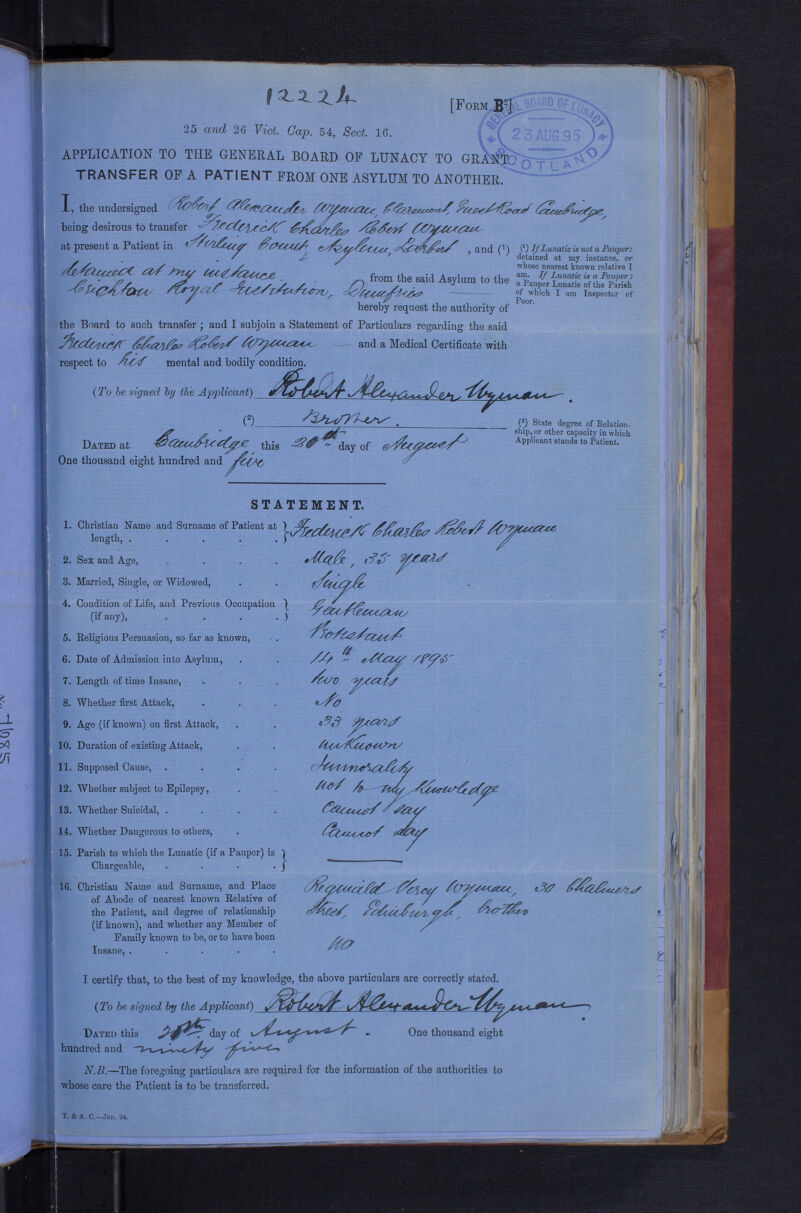 12224
[FORM B²]
GENERAL BOARD OF LUNACY
23 AUG. 95
SCOTLAND
25 and 26 Vict. Cap. 54, Sect. 16.
APPLICATION TO THE GENERAL BOARD OF LUNACY TO GRANT
TRANSFER OF A PATIENT FROM ONE ASYLUM TO ANOTHER.
I, the undersigned Robert Alexander Wyman, Claremont, Road Cambridge,
being desirous to transfer Frederick Charles Robert Wyman
at present a Patient in Stirling County Asylum, Larbert, and (¹)
detained at my instance from the said Asylum to the
Crichton Royal Institution, Dumfries
hereby request the authority of
the Board to such transfer; and I subjoin a Statement of Particulars regarding the said
Frederick Charles Robert Wyman and a Medical Certificate with
respect to his mental and bodily condition.
(¹) If Lunatic is not a Pauper:
detained at my instance, or
whose nearest known relative I
am. If Lunatic is a Pauper:
a Pauper Lunatic of the Parish
of which I am Inspector of
Poor.
(To be signed by the Applicant) Robert Alexander Wyman.
(²) Brother.
(²) State degree of Relation-
ship, or other capacity in which
Applicant stands to Patient.
DATED at Cambridge this 20th day of August
One thousand eight hundred and five
STATEMENT.
1. Christian Name and Surname of Patient at
length, . . . . . } Frederick Charles Robert Wyman
2. Sex and Age, . . . Male, 35 years
3. Married, Single, or Widowed, . . Single
4. Condition of Life, and Previous Occupation
(if any), . . . . } Gentleman
5. Religious Persuasion, so far as known, . Protestant
6. Date of Admission into Asylum, . . 14th May 1895
7. Length of time Insane, . . . two years
8. Whether first Attack, . . . No
9. Age (if known) on first Attack, . . 33 years
10. Duration of existing Attack, . . unknown
11. Supposed Cause, . . . . Immorality
12. Whether subject to Epilepsy, . not to my knowledge
13. Whether Suicidal, . . . . Cannot say
14. Whether Dangerous to others, . Cannot say
15. Parish to which the Lunatic (if a Pauper) is
Chargeable, . . . . }
16. Christian Name and Surname, and Place Reginald Percy Wyman, 30 Chalmers
of Abode of nearest known Relative of Street, Edinburgh, Brother
the Patient, and degree of relationship
(if known), and whether any Member of
Family known to be, or to have been
Insane, . . . . . no
I certify that, to the best of my knowledge, the above particulars are correctly stated.
(To be signed by the Applicant) Robert Alexander Wyman
DATED this 20th day of August. One thousand eight
hundred and ninety five
N.B.—The foregoing particulars are required for the information of the authorities to
whose care the Patient is to be transferred.
T. & A. C.—Jan. 94.